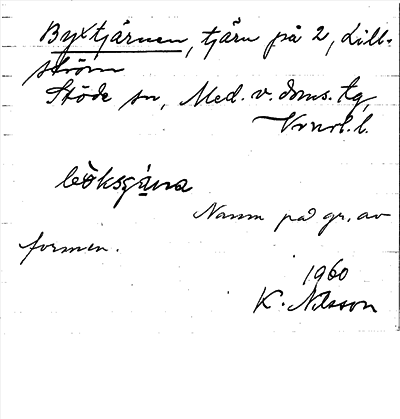 Byxtjärnen, tjärn på 2, Lill-
ström
Stöde sn, Med. v. doms. tg,
Vrnrl. l.
bö̀ksɟạ́na
Namn på gr. av
formen.
1960
K. Nilsson